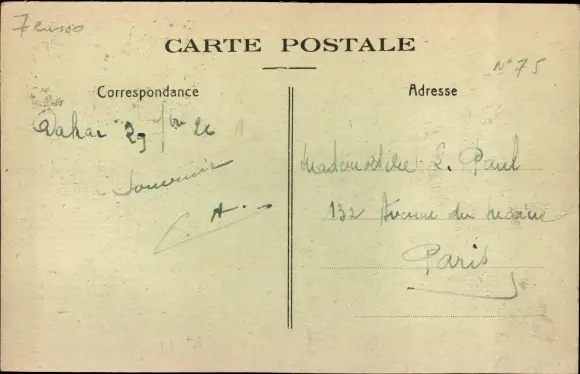 CARTE POSTALE
N° 75
Correspondance
Dakar 29 bre 26
Souvenir
A.
Adresse
Mademoiselle L. Paul
132 Avenue du Maine
Paris